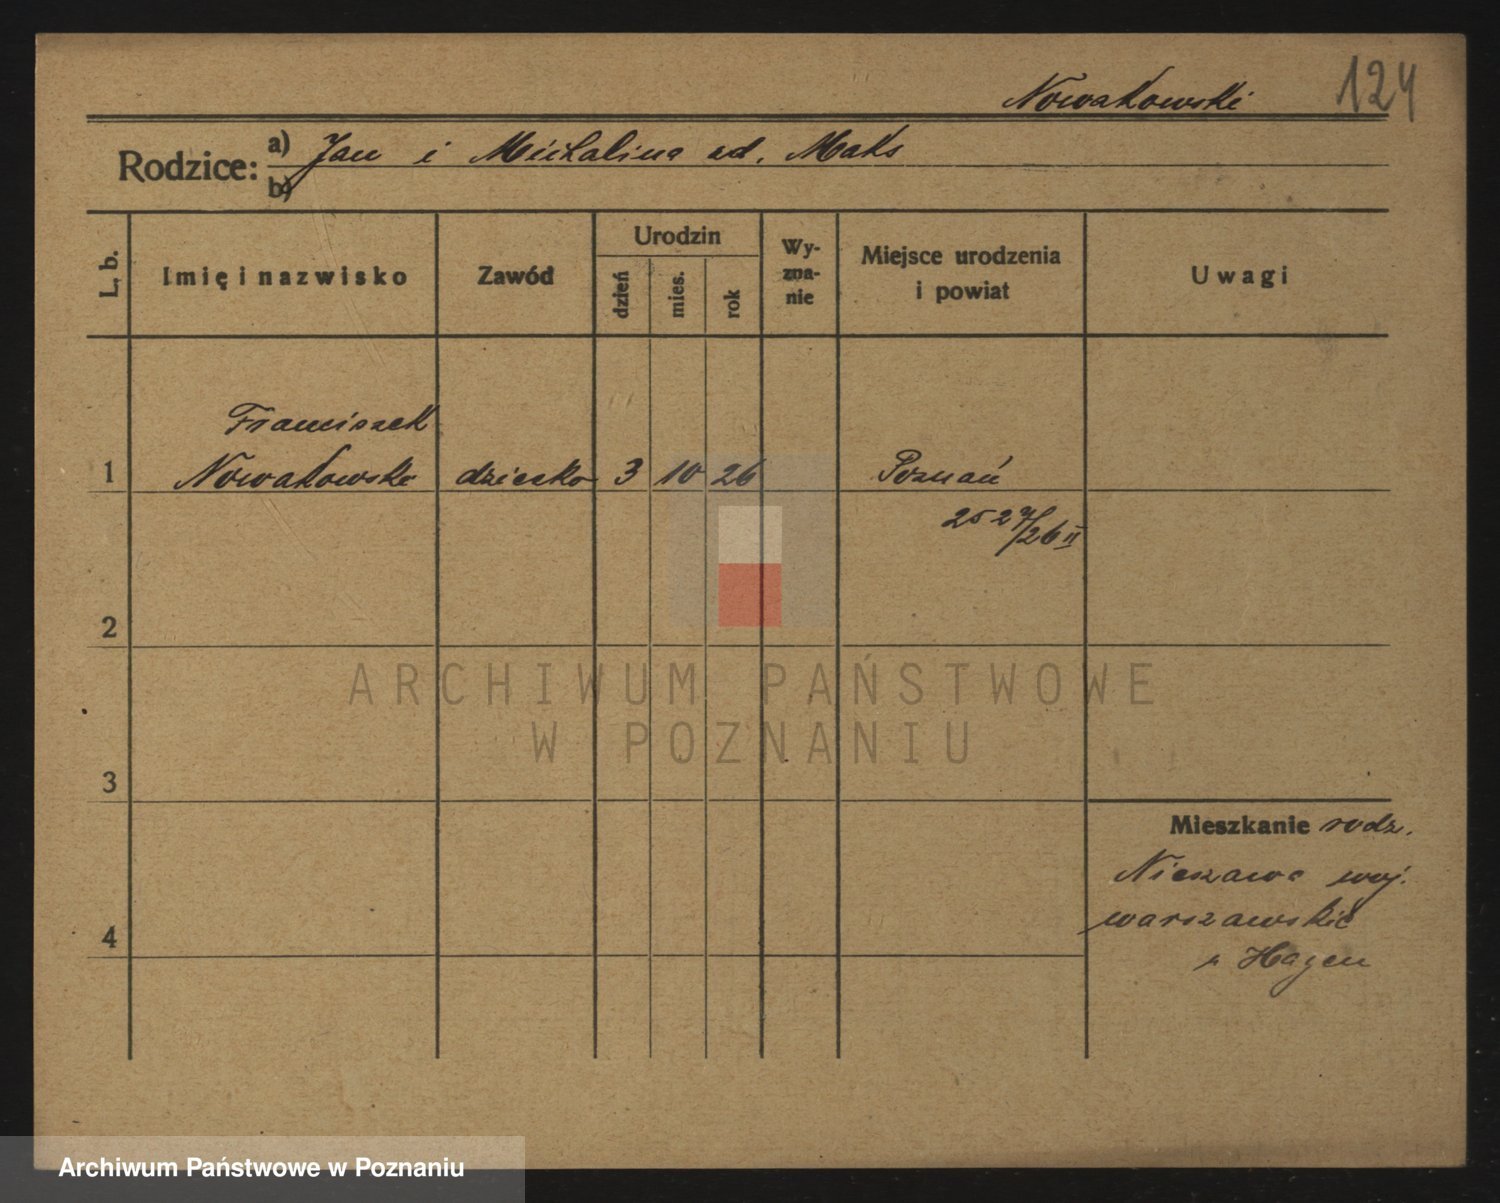 Nowakowski 124
Rodzice: a) Jan i Michalina zd. Maks
b)
L. b. Imię i nazwisko Zawód Urodzin dzień mies. rok Wy-zna-nie Miejsce urodzenia i powiat Uwagi
Franciszek
1 Nowakowski dziecko 3 10 26 Poznań
2527/26 II
2
ARCHIWUM PAŃSTWOWE
W POZNANIU
3
Mieszkanie rodz.
Nieszawa woj.
warszawskie
4
Hagen
Archiwum Państwowe w Poznaniu